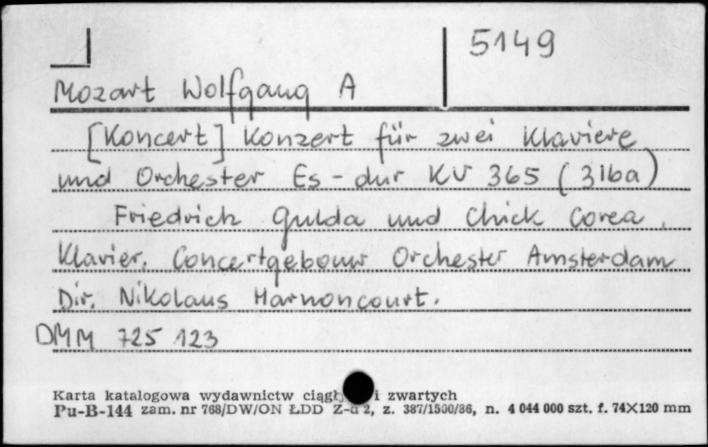 5149
Mozart Wolfgang A
[Koncert] Konzert für zwei Klaviere
und Orchester Es-dur KV 365 (316a)
Friedrich Gulda und Chick Corea,
Klavier. Concertgebouw Orchester Amsterdam
Dir. Nikolaus Harnoncourt.
DMM 725 123
Karta katalogowa wydawnictw i zwartych
Pu-B-144 zam. nr 768/DW/ON ŁDD Z-d 2, z. 387/1500/86, n. 4 044 000 szt. f. 74X120 mm